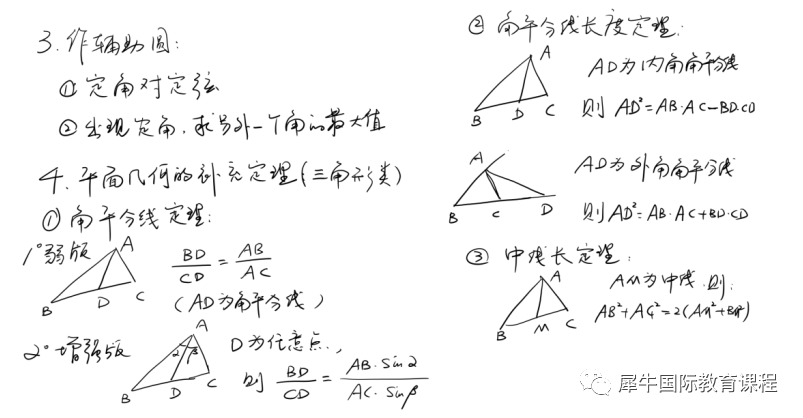 3. 作辅助圆:
① 定角对定弦
② 出现定角, 求另外一个角的最大值
4. 平面几何的补充定理(三角形类)
① 角平分线定理:
1° 弱版
A
B
D
C
BD/CD = AB/AC
(AD为角平分线)
2° 增强版
A
α
β
B
D
C
D为任意点,
则 BD/CD = AB·sinα/AC·sinβ
② 角平分线长度定理:
A
B
D
C
AD为内角角平分线
则 AD²=AB·AC-BD·CD
A
B
C
D
AD为外角角平分线
则AD²=AB·AC+BD·CD
③ 中线长定理:
A
B
M
C
AM为中线, 则:
AB²+AC²=2(AM²+BM²)
犀牛国际教育课程